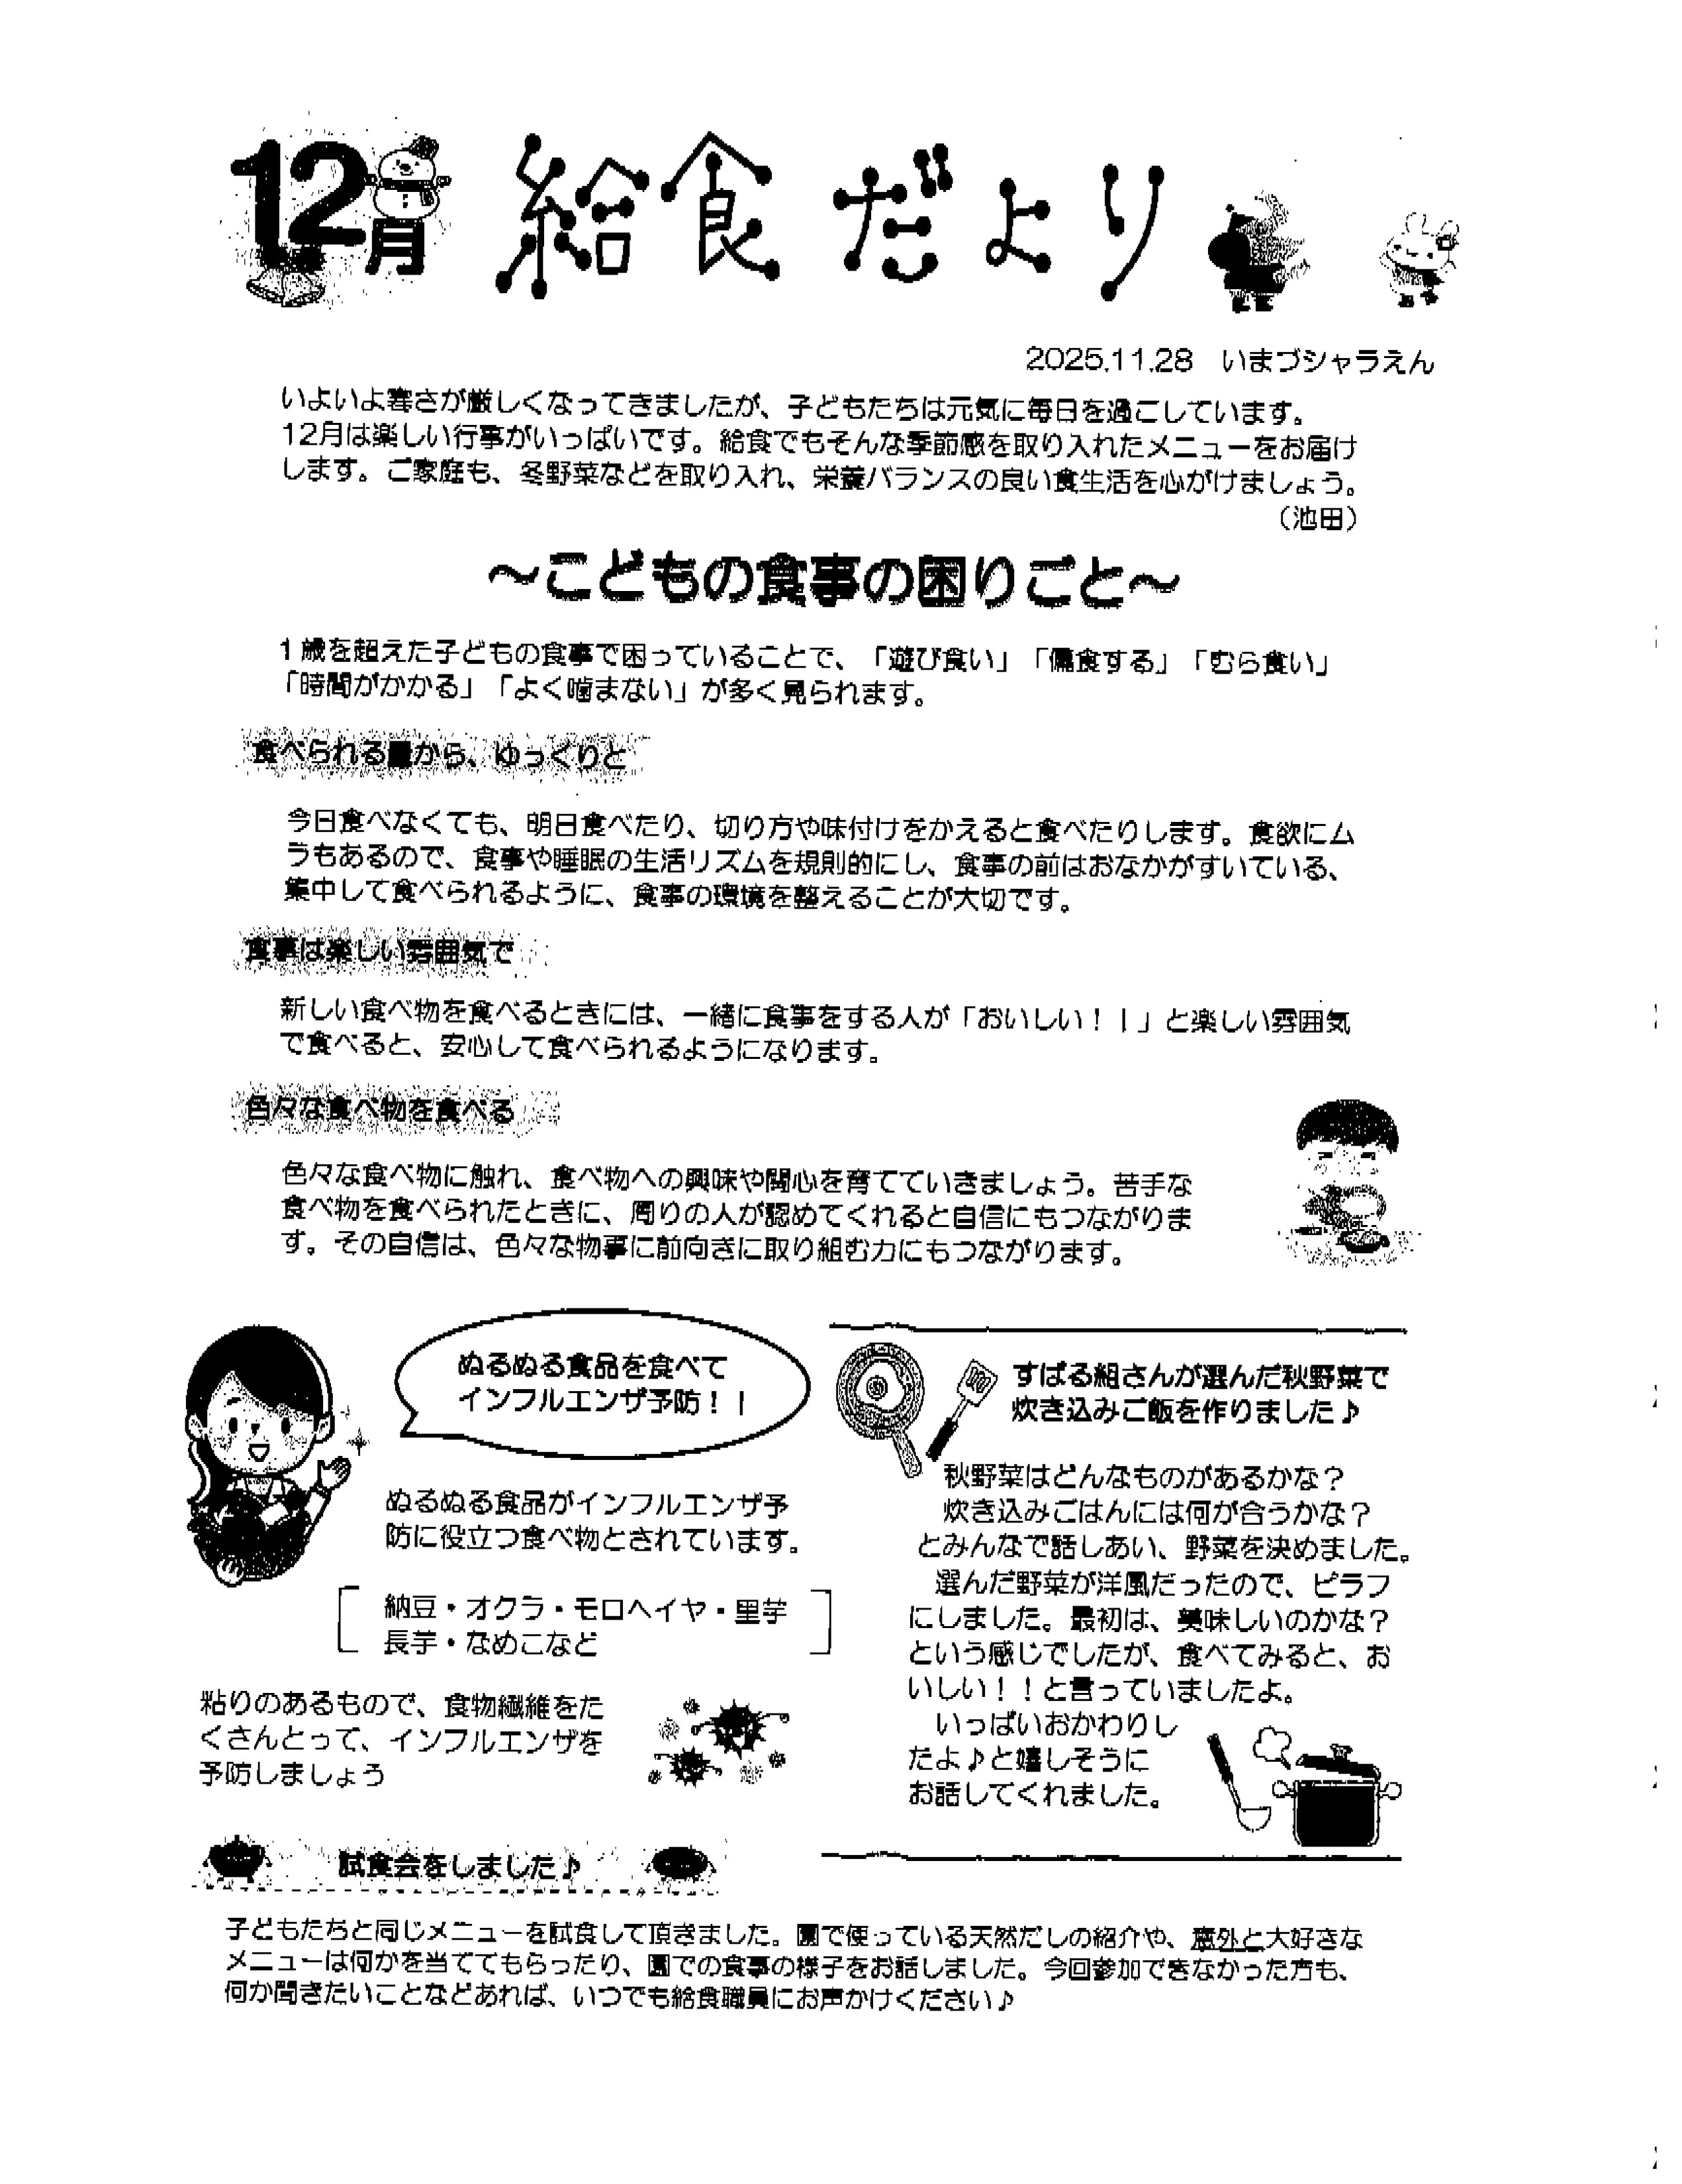 12月 給食だより
2025.11.28 いまづシャラえん
いよいよ寒さが厳しくなってきましたが、子どもたちは元気に毎日を過ごしています。
12月は楽しい行事がいっぱいです。給食でもそんな季節感を取り入れたメニューをお届け
します。ご家庭も、冬野菜などを取り入れ、栄養バランスの良い食生活を心がけましょう。
(池田)
～こどもの食事の困りごと～
1歳を超えた子どもの食事で困っていることで、「遊び食い」「偏食する」「むら食い」
「時間がかかる」「よく噛まない」が多く見られます。
食べられる量から、ゆっくりと
今日食べなくても、明日食べたり、切り方や味付けをかえると食べたりします。食欲にム
ラもあるので、食事や睡眠の生活リズムを規則的にし、食事の前はおなかがすいている、
集中して食べられるように、食事の環境を整えることが大切です。
食事は楽しい雰囲気で
新しい食べ物を食べるときには、一緒に食事をする人が「おいしい！！」と楽しい雰囲気
で食べると、安心して食べられるようになります。
色々な食べ物を食べる
色々な食べ物に触れ、食べ物への興味や関心を育てていきましょう。苦手な
食べ物を食べられたときに、周りの人が認めてくれると自信にもつながりま
す。その自信は、色々な物事に前向きに取り組む力にもつながります。
ぬるぬる食品を食べて
インフルエンザ予防！！
ぬるぬる食品がインフルエンザ予
防に役立つ食べ物とされています。
納豆・オクラ・モロヘイヤ・里芋
長芋・なめこなど
粘りのあるもので、食物繊維をた
くさんとって、インフルエンザを
予防しましょう
すばる組さんが選んだ秋野菜で
炊き込みご飯を作りました♪
秋野菜はどんなものがあるかな？
炊き込みごはんには何が合うかな？
とみんなで話しあい、野菜を決めました。
選んだ野菜が洋風だったので、ピラフ
にしました。最初は、美味しいのかな？
という感じでしたが、食べてみると、お
いしい！！と言っていましたよ。
いっぱいおかわりし
たよ♪と嬉しそうに
お話してくれました。
試食会をしました♪
子どもたちと同じメニューを試食して頂きました。園で使っている天然だしの紹介や、意外と大好きな
メニューは何かを当ててもらったり、園での食事の様子をお話しました。今回参加できなかった方も、
何か聞きたいことなどあれば、いつでも給食職員にお声かけください♪